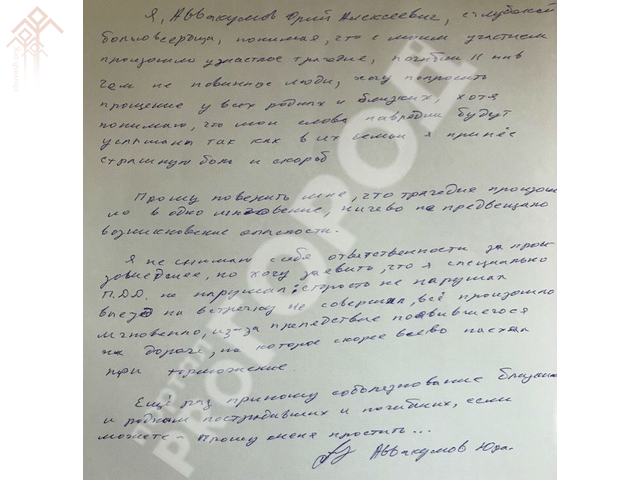 Я, Аввакумов Юрий Алексеевич, с глубокой
боли в сердца, понимая, что с моим участием
произошло ужастное трагедие, погибли 11 ни в
чем не повинные люди, хочу попросить
прощение у всех родных и близких, хотя
понимаю, что мои слова навредли будут
услышаны так как в их семьи я принёс
страшную боль и скорбь
Прошу поверить мне, что трагедия произош
ло в одно мгновение, ничево не предвещало
возникновение опасности.
Я не снимаю себя ответственности за прои
зошедшее, но хочу заевить, что я специально
П.Д.Д. не нарушал, стросто не нарушал
выезд на встречку не совершал, всё произошло
мгновенно, из-за препедствие появившегося
на дороге, на которое скорее всево наехал
при торможение
Ещё раз приношу соболезнование близким
и родным пострадивших и погибших, если
можете - Прошу меня простить...
Аввакумов Юра.
PROГОРОД